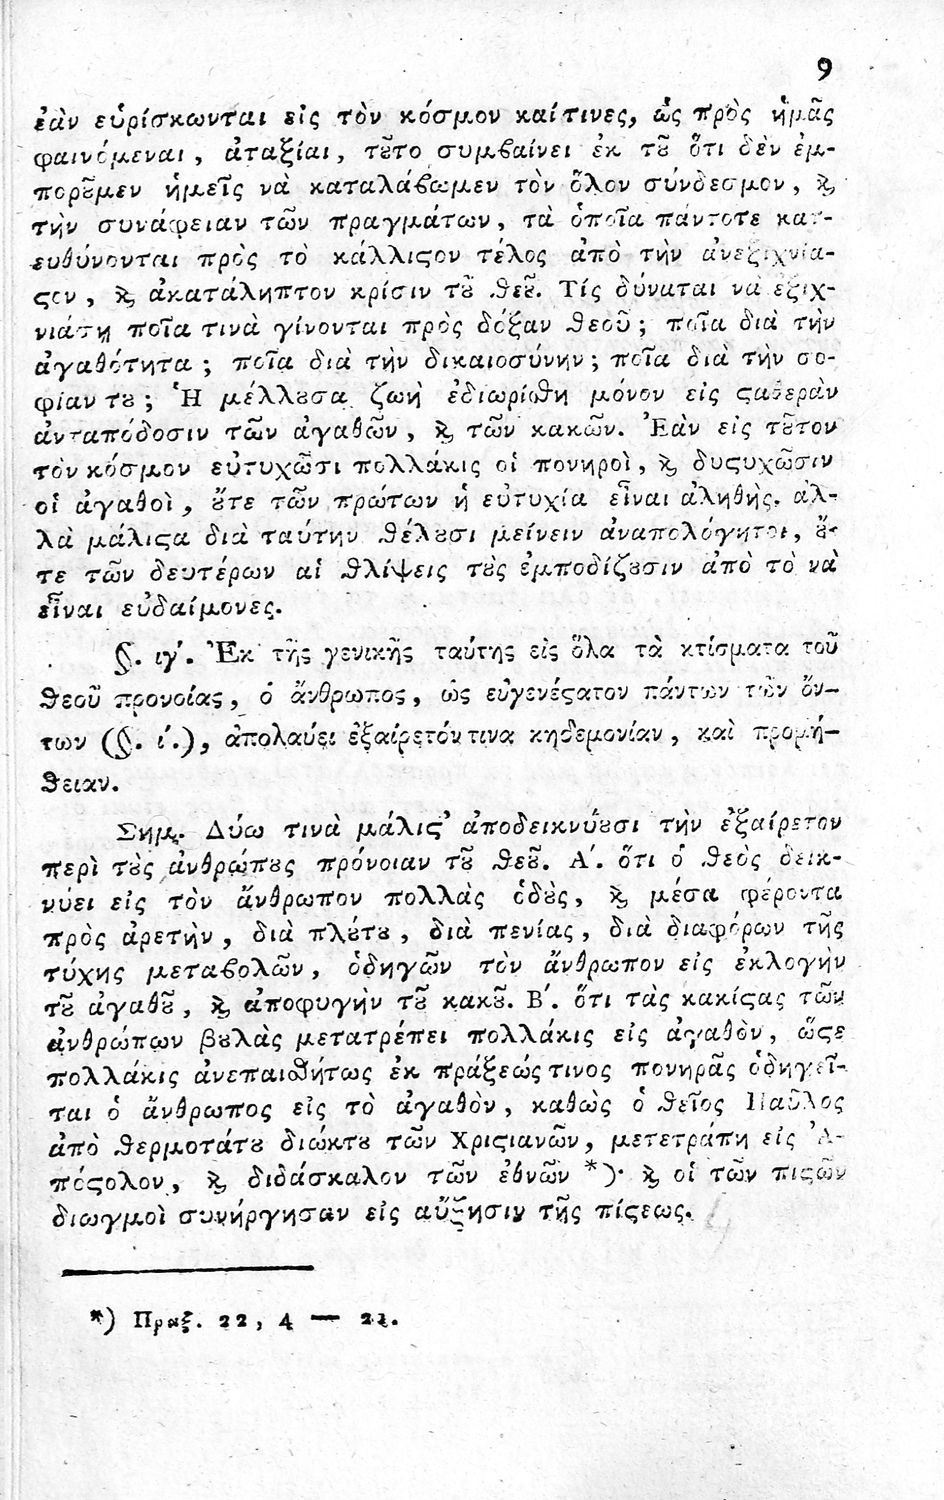 9
ἐὰν εὑρίσκωνται εἰς τὸν κόσμον καίτινες, ὡς πρὸς ἡμᾶς
φαινόμεναι, ἀταξίαι, τȣ͂το συμβαίνει ἐκ τȣ͂ ὅτι δὲν ἐμ-
πορȣ͂μεν ἡμεῖς νὰ καταλάβωμεν τὸν ὅλον σύνδεσμον, ϗ
τὴν συνάφειαν τῶν πραγμάτων, τὰ ὁποῖα πάντοτε κατ-
ευθύνονται πρὸς τὸ κάλλιϛον τέλος ἀπὸ τὴν ἀνεξιχνία-
ϛον, ϗ ἀκατάληπτον κρίσιν τȣ͂ Θεȣ͂. Τίς δύναται νὰ ἐξιχ-
νιάσῃ ποῖα τινὰ γίνονται πρὸς δόξαν Θεοῦ; ποῖα διὰ τὴν
ἀγαθότητα; ποῖα διὰ τὴν δικαιοσύνην; ποῖα διὰ τὴν σο-
φίαν τȣ; Ἡ μέλλȣσα ζωὴ ἐδιωρίσθη μόνον εἰς ϛαθερὰν
ἀνταπόδοσιν τῶν ἀγαθῶν, ϗ τῶν κακῶν. Ἐὰν εἰς τȣ͂τον
τὸν κόσμον εὐτυχῶσι πολλάκις οἱ πονηροὶ, ϗ δυϛυχῶσιν
οἱ ἀγαθοὶ, ȣ̓́τε τῶν πρώτων ἡ εὐτυχία εἶναι ἀληθὴς, ἀλ-
λὰ μάλιϛα διὰ ταύτην θέλȣσι μείνειν ἀναπολόγητοι, ȣ̓́-
τε τῶν δευτέρων αἱ θλίψεις τȣ̀ς ἐμποδίζȣσιν ἀπὸ τὸ νὰ
εἶναι εὐδαίμονες.
§. ιγ´. Ἐκ τῆς γενικῆς ταύτης εἰς ὅλα τὰ κτίσματα τοῦ
Θεοῦ προνοίας, ὁ ἄνθρωπος, ὡς εὐγενέϛατον πάντων τῶν ὄν-
των (§. ί.), ἀπολαύει ἐξαίρετόν τινα κηδεμονίαν, καὶ προμή-
θειαν.
Σημ. Δύω τινὰ μάλιϛ᾽ ἀποδεικνύȣσι τὴν ἐξαίρετον
περὶ τȣ̀ς ἀνθρώπȣς πρόνοιαν τȣ͂ Θεȣ͂. Α´. ὅτι ὁ Θεὸς δεικ-
νύει εἰς τὸν ἄνθρωπον πολλὰς ὁδȣ̀ς, ϗ μέσα φέροντα
πρὸς ἀρετὴν, διὰ πλȣ́τȣ, διὰ πενίας, διὰ διαφόρων τῆς
τύχης μεταβολῶν, ὁδηγῶν τὸν ἄνθρωπον εἰς ἐκλογὴν
τȣ͂ ἀγαθȣ͂, ϗ ἀποφυγὴν τȣ͂ κακȣ͂. Β´. ὅτι τὰς κακίϛας τῶν
ἀνθρώπων βȣλὰς μετατρέπει πολλάκις εἰς ἀγαθὸν, ὥϛε
πολλάκις ἀνεπαισθήτως ἐκ πράξεώς τινος πονηρᾶς ὁδηγεῖ-
ται ὁ ἄνθρωπος εἰς τὸ ἀγαθὸν, καθὼς ὁ θεῖος Παῦλος
ἀπὸ θερμοτάτȣ διώκτȣ τῶν Χριϛιανῶν, μετετράπη εἰς Ἀ-
πόϛολον, ϗ διδάσκαλον τῶν ἐθνῶν *)· ϗ οἱ τῶν πιϛῶν
διωγμοὶ συνήργησαν εἰς αὔξησιν τῆς πίϛεως.
*) Πραξ. 22, 4 — 21.